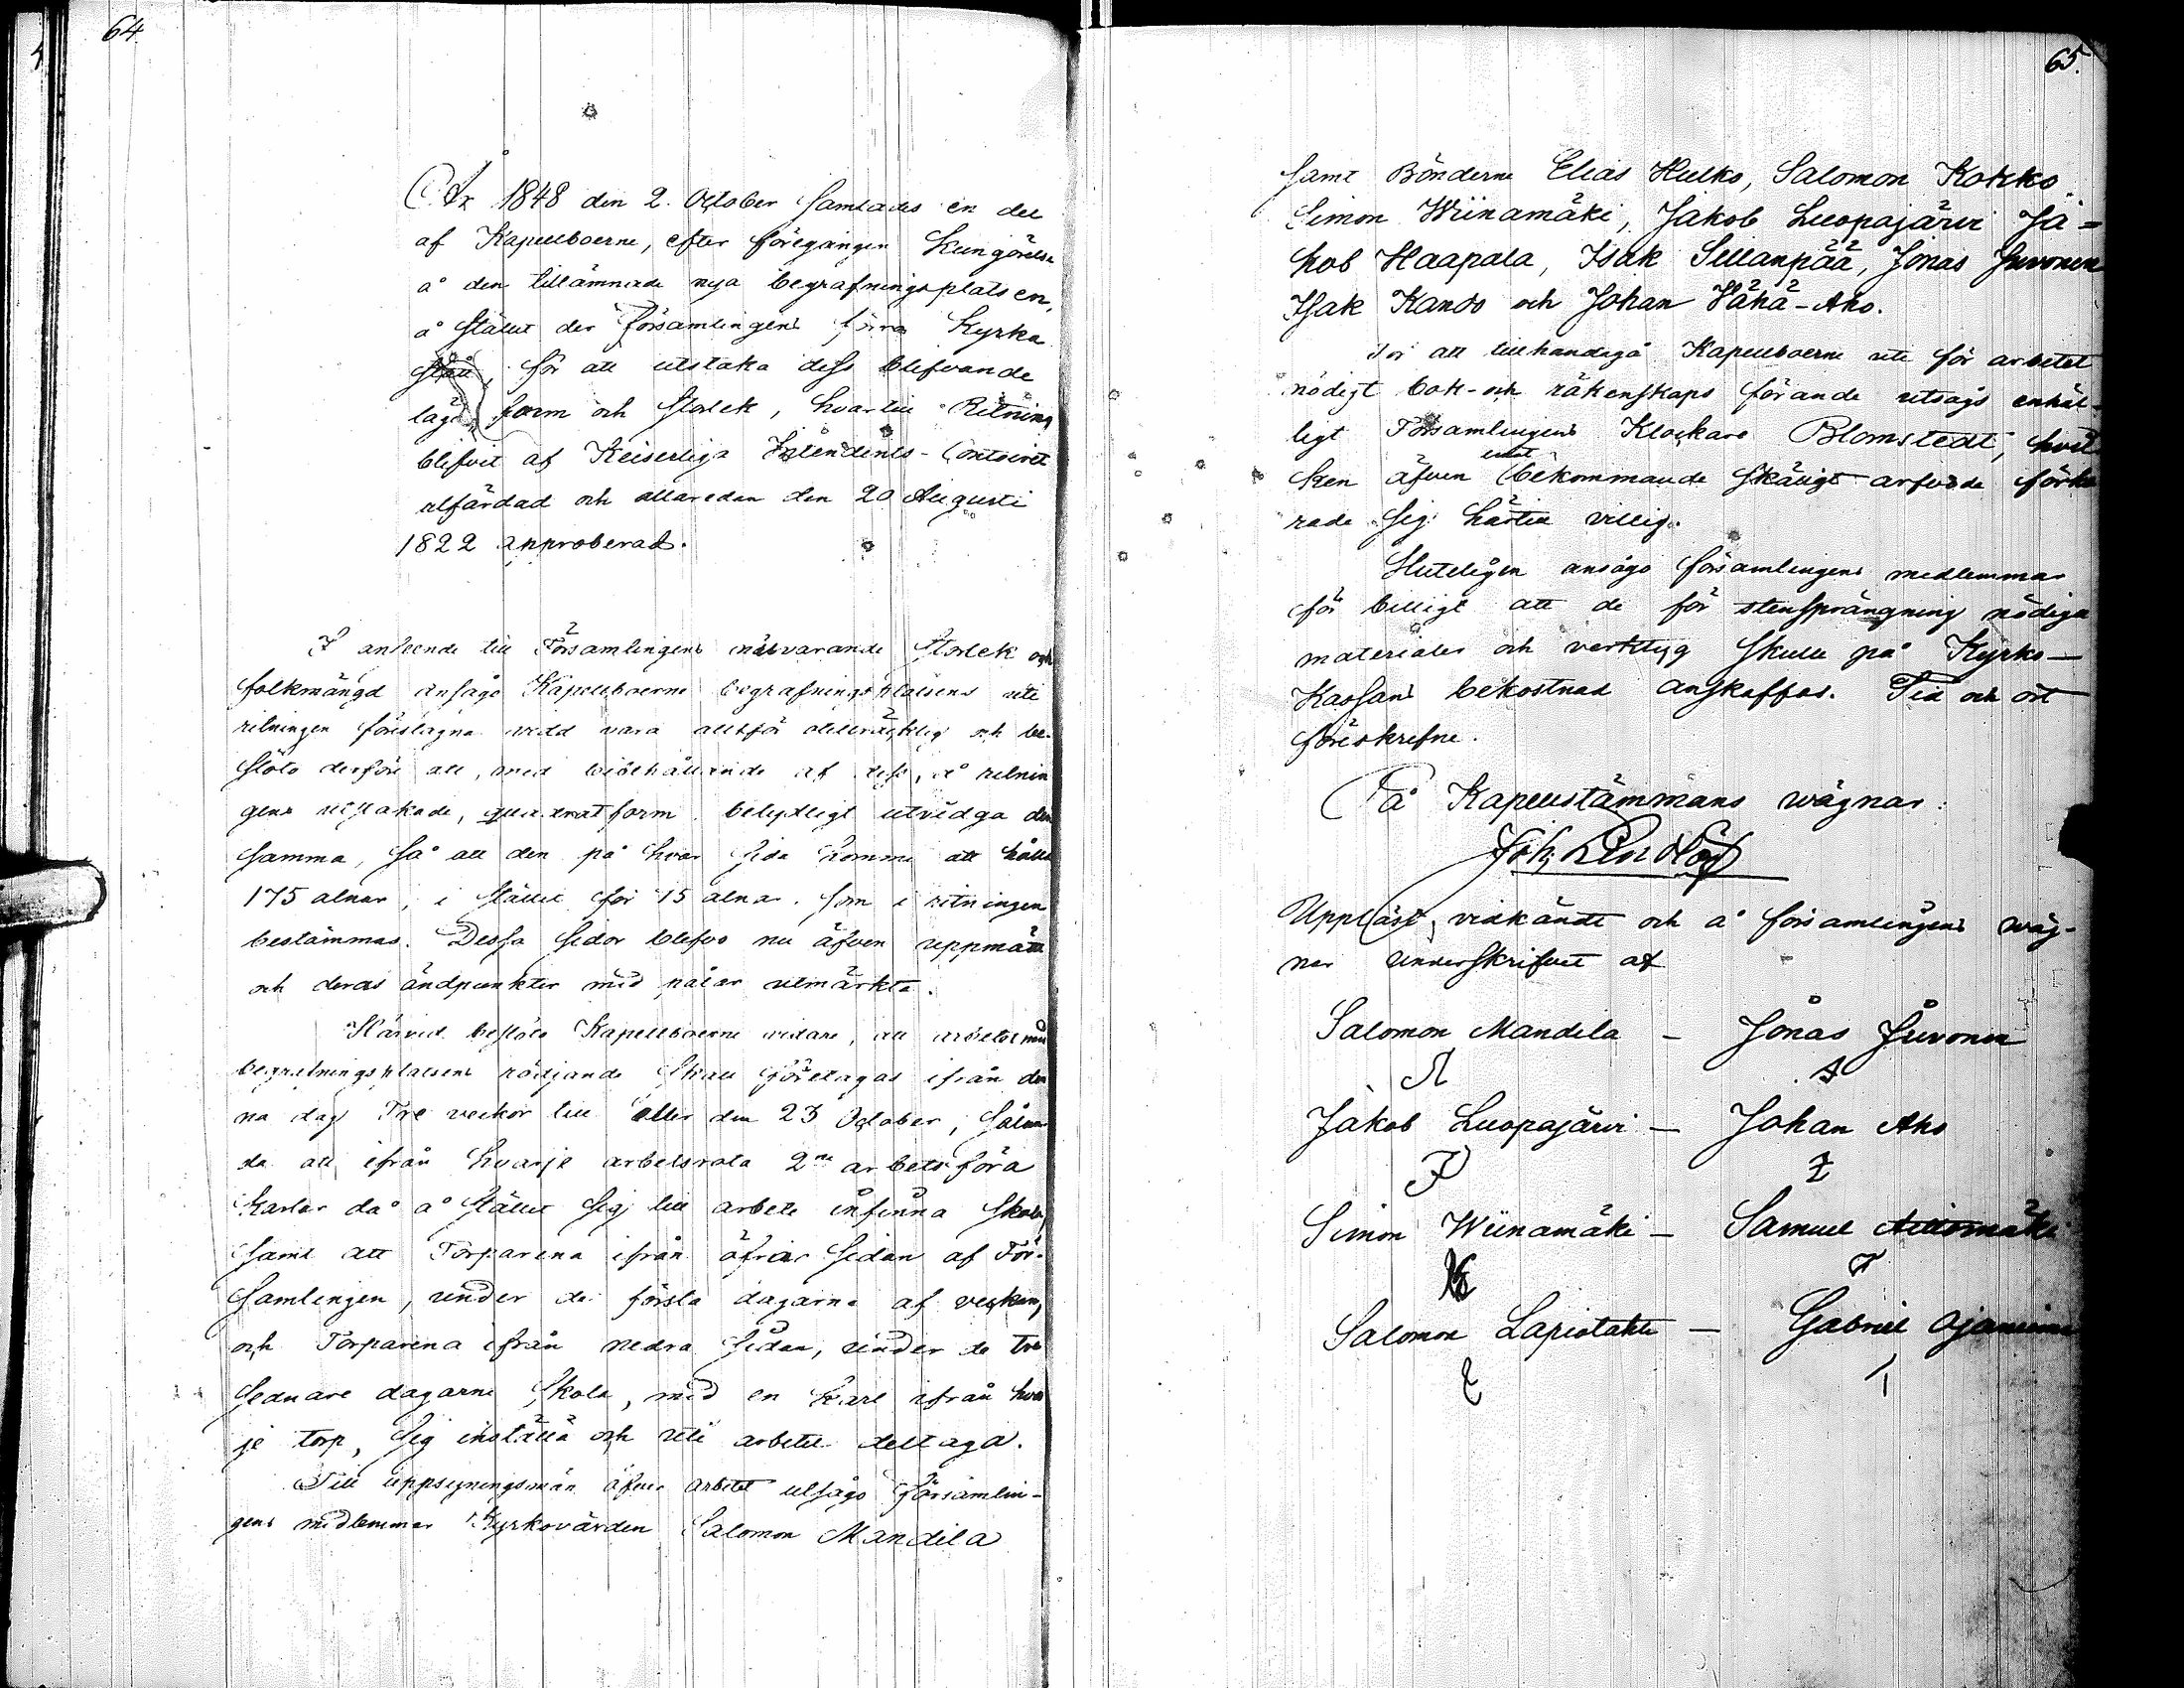 64.
År 1848 den 2. October Samlades en del
af Kapellboerne, efter föregången Kungörelse
å den tillämnade nya begrafningsplatsen,
å Stället der Församlingens förra Kyrka
stått, för att utstaka dess blefvande
läge, form och Storlek, hvartill Ritning
blifvit af Keiserliga Intendents-Contoiret
utfärdad och allaredan den 20 Augusti
1822 approberad.
I anseende till Församlingens nuvarande Storlek och
folkmängd ansågo Kapellboerne begrafningsplatsens uti
ritningen föreslagna vidd vara alltför otillräcklig och be-
slöto derföre att, med bibehållande af dess, å ritnin
gens utstakade, quadrat form betydligt utvidga den
samma, så att den på hvar sida komme att hålla
175 alnar, i stället för 75 alnar, som i ritningen
bestämmas. Dessa sidor blefvo nu äfven uppmätta
och deras ändpunkter med pålar utmärkta.
Härvid beslöto Kapellboerne vidare, att arbetet med
begrafningsplatsens rödjande skall företagas ifrån den
na dag Tre veckor till eller den 23 October, Sålun
da att ifrån hvarje arbetsrota 2ne arbetsföra
Karlar då å Stället Sig till arbete infinna Skola,
samt att Torparena ifrån öfrar Sidan af För-
samlingen, under de första dagarne af veckan,
och Torparena ifrån nedra Sidan, under de tre
sednare dagarne Skola, med en Karl ifrån hvar
je torp, Sig inställa och uti arbetet deltaga.
Till uppsyningsmän öfver arbetet utsågo Församlin-
gens medlemmar Kyrkovärden Salomon Mandila
65.
samt Bönderne Elias Hulko, Salomon Kokko
Simon Wiinamäki, Jakob Luopajärvi Ja=
kob Haapala, Isak Sillanpää, Jonas Juvonen
Isak Kando och Johan Vähä-Aho.
För att tillhandagå Kapellboerne uti för arbetet
nödigt bok- och räkenskaps förande utsågs enhäl-
ligt Församlingens Klockare Blomstedt, hvil
ken äfven bekommande skäligt arfvode förkla
rade Sig härtill villig.
Sluteligen ansågo församlingens medlemmar
för billigt att de för stensprängning nödiga
materialer och verktyg Skulle på Kyrko-
Kassans bekostnad anskaffas. Tid och ort
föreskrefne.
På Kapellstämmans wägnar:
Uppläst, vidkändt och å församlingens wäg-
nar underskrifvet af
Salomon Mandila – Jonas Juvonen
Jakob Luopajärvi – Johan Aho
Simon Wiinamäki – Samuel
Salomon Lapiolahti – Gabriel